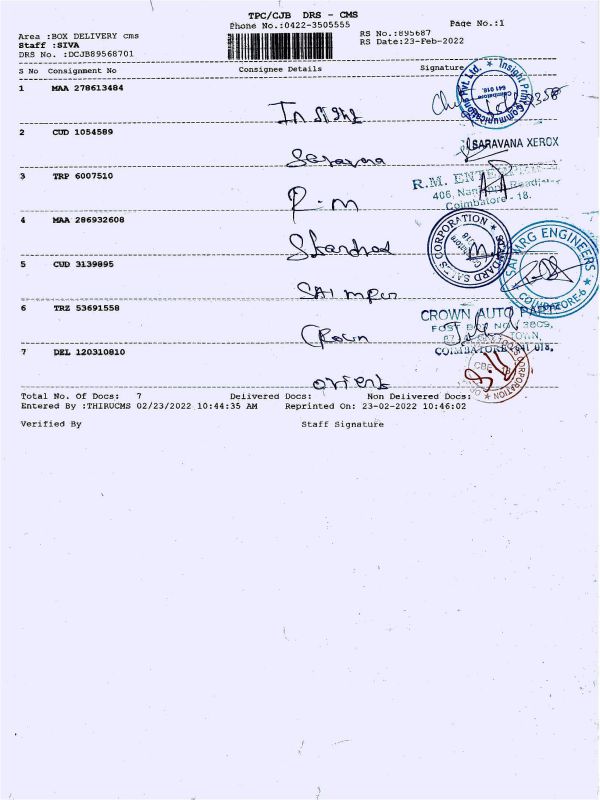 TPC/CJB DRS - CMS
Phone No.:0422-3505555
Page No.:1
Area :BOX DELIVERY cms
RS No.:895687
Staff :SIVA
RS Date:23-Feb-2022
DRS No. :DCJB89568701
S No Consignment No Consignee Details Signature
1 MAA 278613484
Insight Print Communications Pvt. Ltd.
Coimbatore
641 018.
2 CUD 1054589
Saravana
SARAVANA XEROX
3 TRP 6007510
R.M
R.M. ENTERPRISES
Coimbatore - 18.
4 MAA 286932608
STANDARD SALES CORPORATION
5 CUD 3139895
SAI MRG ENGINEERS
COIMBATORE-6
6 TRZ 53691558
Crown
CROWN AUTO
POST BOX NO. 3809,
TOWN,
COIMBATORE-641 018.
7 DEL 120310810
orient
CORPORATION
CBE
Total No. Of Docs: 7 Delivered Docs: Non Delivered Docs:
Entered By :THIRUCMS 02/23/2022 10:44:35 AM Reprinted On: 23-02-2022 10:46:02
Verified By Staff Signature